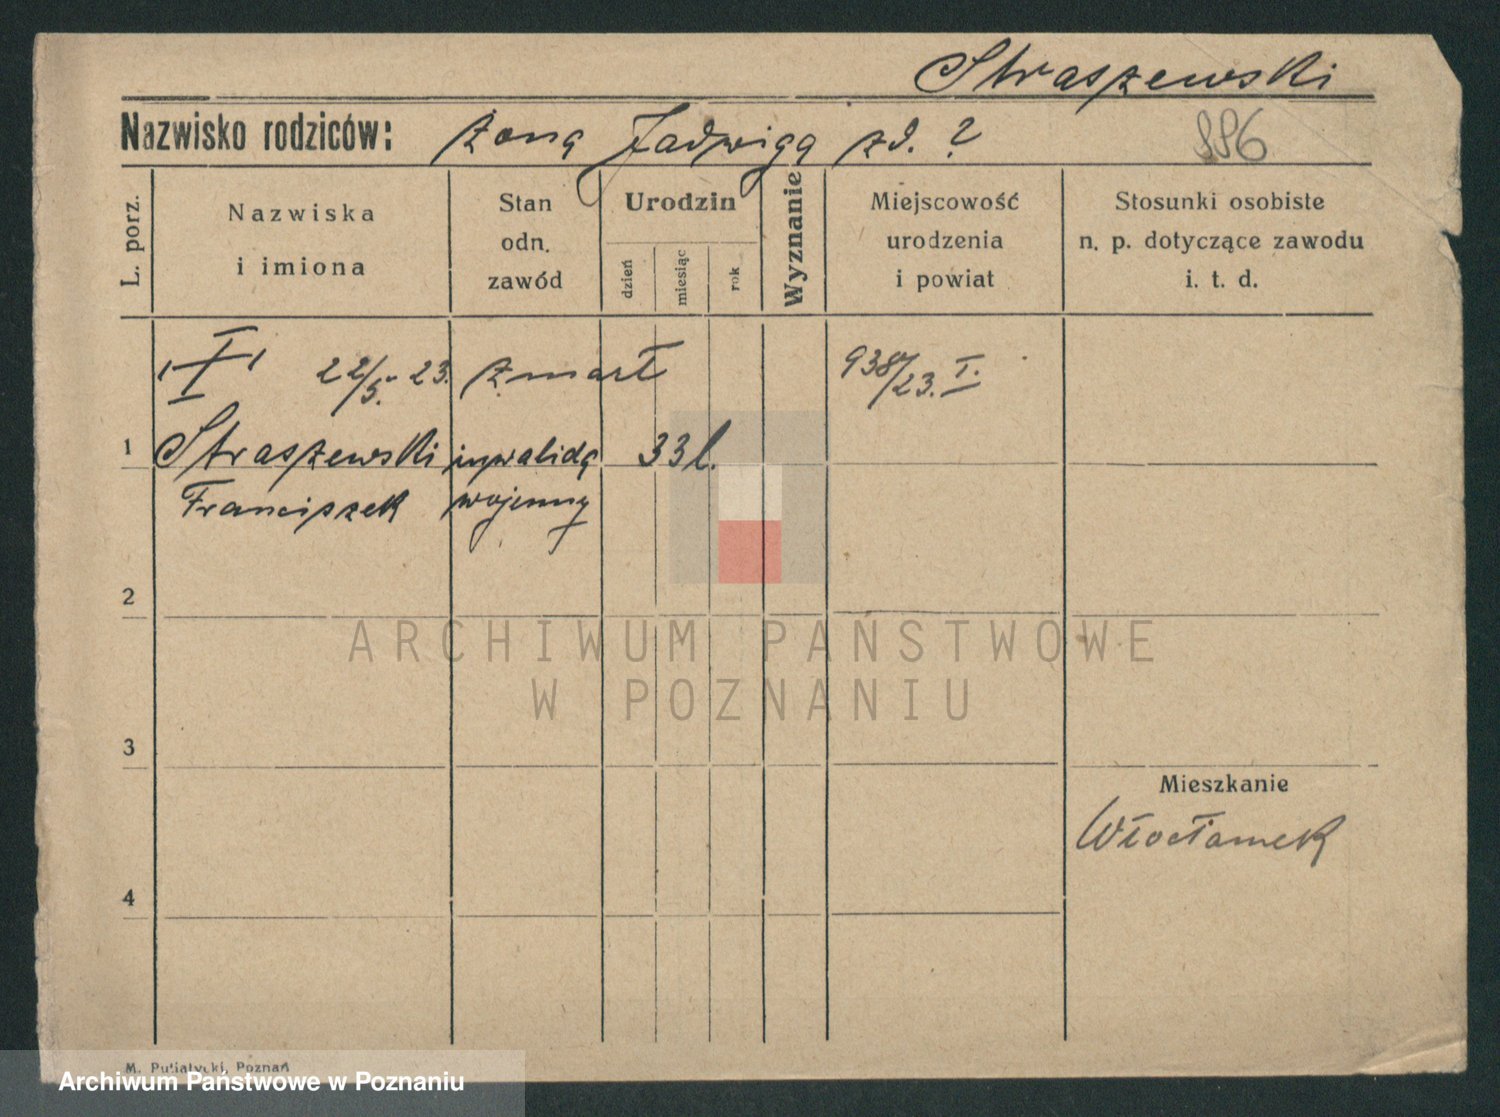 Straszewski
Nazwisko rodziców: żona Jadwiga zd. ?
996
L. porz.
Nazwiska
i imiona
Stan
odn.
zawód
Urodzin
dzień
miesiąc
rok
Wyznanie
Miejscowość
urodzenia
i powiat
Stosunki osobiste
n. p. dotyczące zawodu
i. t. d.
22/5. 23. zmarł
938/23. I.
1 Straszewski inwalida 33 l.
Franciszek wojenny
2
ARCHIWUM PAŃSTWOWE
W POZNANIU
3
Mieszkanie
Włocławek
4
M. Putiatycki, Poznań
Archiwum Państwowe w Poznaniu